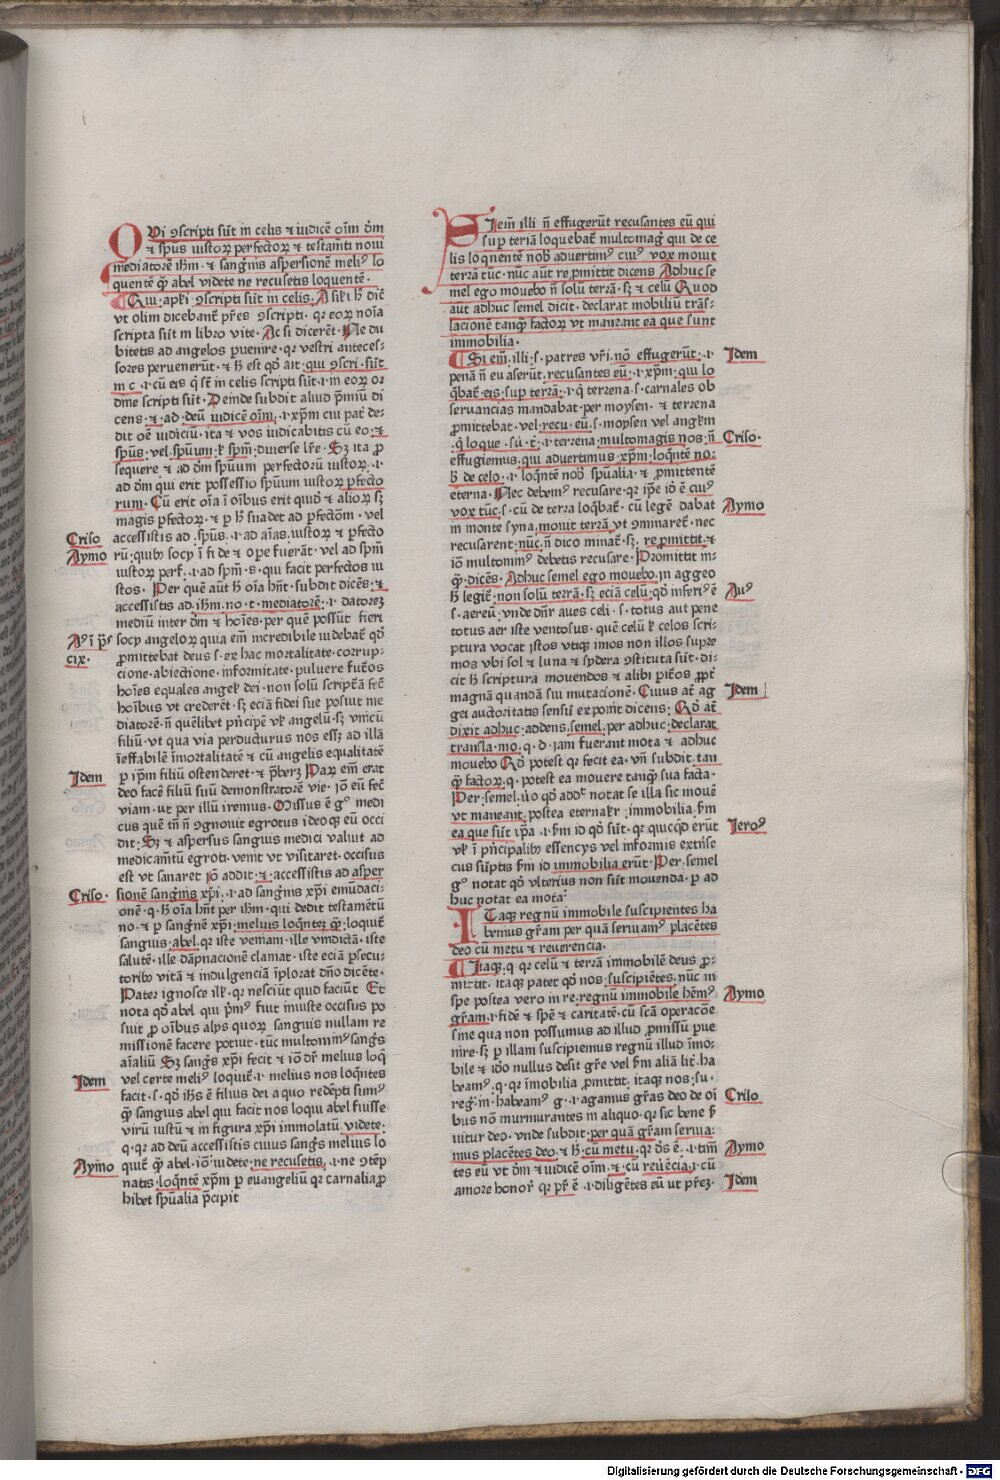 QVi ꝯscripti sūt in celis ⁊ iudicē oīm dm̄
⁊ sp̄us iustoꝝ perfectoꝝ ⁊ testam̄ti noui
mediatorē ih̄m · ⁊ sangīnis aspersionē meliꝰ lo
quentē qͣ̄ abel videte ne recusetis loquentē ·
Qui · apl̄i ꝯscripti sūt in celis ·
vt olim dicebant̄ pr̄es ꝯscripti · qꝛ eoꝝ noīa
scripta sūt in libro vite · Ac si dicerēt · Ne du
bitetis ad angelos ꝑuenire · qꝛ vestri anteces⸗
sores peruenerūt · ⁊ h̄ est qd̄ ait · qui ꝯscri · sūt
in c · ı cū eis q̄ st̄ in celis scripti sūt · ı in eoꝝ or
dine scripti sūt · Deinde subdit aliud p̄miū di
cens · ⁊ · ad · deū iudicē oīm · ı xp̄m cui pat̄ de⸗
dit oē iudiciū · ita ⁊ vos iudicabitis cū eo · ⁊
sp̄us · vel sp̄uum · ł sp̄m · diuerse lr̄e · Sꝫ ita ꝓ
sequere ⁊ ad dm̄ sp̄uum perfectorū iustoꝝ · ı
ad dm̄ qui erit possessio sp̄uum iustoꝝ ꝑfecto
rum · Cū erit oīa ī oībus erit quid̄ ⁊ alioꝝ sꝫ
magis ꝑfectoꝝ · ⁊ ꝑ h̄ suadet ad ꝑfectōm · vel
Criso accessistis ad · sp̄us · ı ad aīas · iustoꝝ ⁊ ꝑfecto
Aymo rū · quibꝰ socy ī fide ⁊ ope fuerāt · vel ad sp̄m
iustoꝝ perf · ı ad sp̄m · s · qui facit perfectos iu
stos · Per que aūt h̄ oīa hn̄t · subdit dicēs · ⁊
accessistis ad · ih̄m · no · t · mediatorē · ı datorez
mediū inter dm̄ ⁊ hoīes · per quē possūt fieri
Aꝰ ī pˢ socy angeloꝝ quia em̄ incredibile uidebat̄ qd̄
cix · ꝓmittebat deus · s · ex hac mortalitate · corrup⸗
cione · abiectione · infirmitate · puluere fut̄os
hoīes equales angel̄ dei · non solū scriptā fec̄
hoībus vt crederēt · sꝫ eciā fidei sue posiut me
diatorē · n̄ quēlibet pn̄cipē vł angelū · sꝫ vnicū
filiū · vt qua via perducturus nos essꝫ ad illā
ieffabilē īmortalitatē ⁊ cū angelis equalitatē
Idem ꝑ ip̄m filiū ostenderet · ⁊ p̄berꝫ Paꝝ em̄ erat
deo facē filiū suū demonstratorē vie · iō eū fec̄
viam · ut per illū iremus · Missus ē gͦ medi
cus quē tn̄ n̄ ꝯgnouit egrotus ideoqꝫ eū occi
dit · Sꝫ ⁊ aspersus sanguis medici valuit ad
medicam̄tū egroti · venit vt visitaret · occisus
est vt sanaret Iō addit · ⁊ · accessistis ad asper
Criso · sionē sangīnis xp̄i · ı ad sangīnis xp̄i emūdaci⸗
onē · q · h̄ oīa hn̄t per ih̄m · qui dedit testamētū
no · ⁊ ꝑ sangīnē xp̄i · melius loqn̄tez qͣ̄ · loquit̄
sanguis abel · qꝛ iste veniam · ille vīndictā · iste
salutē · ille dāpnacionē clamat · iste eciā ꝑsecu⸗
toribꝰ vitā ⁊ indulgenciā īplorat dn̄o dicēte ·
Pater ignosce ill̄ · qꝛ nesciūt quid faciūt Et
nota qd̄ abel qui p̄mꝰ fuit iniuste occisus po
suit ꝓ oībus alys quoꝝ sanguis nullam re
missionē facere potuit · tūc multominꝰ sanḡs
aīaliū Sꝫ sanḡs xp̄i fecit ⁊ iō dr̄ melius loq̄
Idem vel certe meliꝰ loquit̄ · ı melius nos loqn̄tes
facit · s · qd̄ ih̄s ē filius dei a quo redēpti sumꝰ
qͣ̄ sanguis abel qui facit nos loqui abel fuisse
virū iustū ⁊ in figura xp̄i immolatū · videte ·
q · qꝛ ad deū accessistis cuius sanḡs melius lo
Aymo quit̄ qͣ̄ abel · iō · videte · ne recusetis · ı ne ꝯtēp
natis · loqn̄tē xp̄m ꝑ euangeliū qꝛ carnalia ꝓ
hibet sp̄ualia p̄cipit
SIem̄ illi n̄ effugerūt recusantes eū qui
suꝑ terrā loquebat̄ multomagꝭ qui de ce
lis loquentē nob̄ aduertimꝰ cuiꝰ vox mouit
terrā tūc · nūc aūt repmittit dicens Adhuc se
mel ego mouebo n̄ solū terrā · sꝫ ⁊ celū Quod
aut adhuc semel dicit · declarat mobiliū trās⸗
lacionē tanqͣ̄ factoꝝ vt maneant ea que sunt
immobilia ·
Si em̄ · illi · s · patres vr̄i · nō effugerūt · ı Idem
penā n̄ euaserūt · recusantes eū · ı xp̄m · qui lo
q̄bat̄ · eis · suꝑ terrā · ı q̄ terrena · s · carnales ob
seruancias mandabat per moysen · ⁊ terrena
ꝓmittebat · vel recu · eū · s · moysen vel angl̄m
· q̄ loque · su · t̄ · ı terrena · multomagis nos · n̄ Criso ·
effugiemus · qui aduertimus xp̄m · loqn̄tē no⸗
b̄ de celo · ı loqn̄tē nob̄ sp̄ualia · ⁊ ꝓmittentē
eterna · Nec debemꝰ recusare · qꝛ ip̄e id̄ ē cuiꝰ
vox tūc · s · cū de terra loq̄bat̄ · cū legē dabat Aymo
in monte syna · mouit terrā vt ꝯminaret̄ · nec
recusarent · nūc · n̄ dico minat̄ · sꝫ · repmittit · ⁊
iō multominꝰ debetis recusare · Promittit in⸗
qͣ̄ · dicēs · Adhuc semel ego mouebo · in aggeo
h̄ legit̄ · non solū terrā · sꝫ eciā celū · qd̄ inferiꝰ ē Auꝰ
· s · aereū · vnde dn̄r aues celi · s · totus aut pene
totus aer iste ventosus · quē celū ł celos scri⸗
ptura vocat istos vtiqꝫ imos non illos supre
mos vbi sol ⁊ luna ⁊ sydera ꝯstituta sūt · di⸗
cit h̄ scriptura mouendos ⁊ alibi pit̄os ꝓpt̄
magnā quandā sui mutacionē · Cuius at̄ ag Idem
gei auctoritatis sensū exponit dicens · Qd̄ at̄
dixit adhuc · addens · semel · per adhuc · declarat
transla · mo · q · d · iam fuerant mota ⁊ adhuc
mouebo Qd̄ potest qꝛ fecit ea · vn̄ subdit · tan
qͣ̄ factoꝝ · q · potest ea mouere tanqͣ̄ sua facta ·
Per · semel · uͦ qd̄ addᶜ notat se illa sic mouē
vt maneant · postea eternalr̄ · immobilia · s̄m
ea que sūt ip̄a · ı s̄m id qd̄ sūt · qꝛ quicqd̄ erūt Ieroꝰ
vł ī pn̄cipalibꝰ essencys vel informis extrīse
cus sūptis s̄m id immobilia erūt · Per · semel
gͦ notat qd̄ vlterius non sūt mouenda · ꝑ ad
huc notat ea mota
ITaqꝫ regnū immobile suscipientes ha
bemus gr̄am per quā seruiamꝰ placētes
deo cū metu ⁊ reuerencia ·
Itaqꝫ · q qꝛ celū ⁊ terrā immobilē deus ꝓ⸗
mittit · itaqꝫ patet qd̄ nos · suscipiētes · nūc in
spe postea vero in re · regnū immobile hēmꝰ Aymo
gr̄am · ı fidē ⁊ spē ⁊ caritatē · cū scā operacōe
sine qua non possumus ad illud ꝓmissū ꝑue
nire · sꝫ ꝑ illam suscipiemus regnū illud īmo⸗
bile ⁊ idō nullus desit gr̄e vel s̄m aliā lit̄ · ha
beamꝰ · q · qꝛ īmobilia ꝓmittit · itaqꝫ nos · su ·
reḡ · in · habeamꝰ g · ı agamus gr̄as deo de oī Criso
bus nō murmurantes in aliquo · qꝛ sic bene s̄
uitur deo · vnde subdit · per quā gr̄am seruia⸗
mus placētes deo · ⁊ h̄ · cū metu · qꝛ dn̄s ē · ı tim̄ Aymo
tes eū vt dm̄ ⁊ iudicē oīm · ⁊ · cū reuēcia · ı cū
amore honor̄ qꝛ pr̄ ē · ı diligētes eū ut pr̄ez · Idem
Digitalisierung gefördert durch die Deutsche Forschungsgemeinschaft - DFG